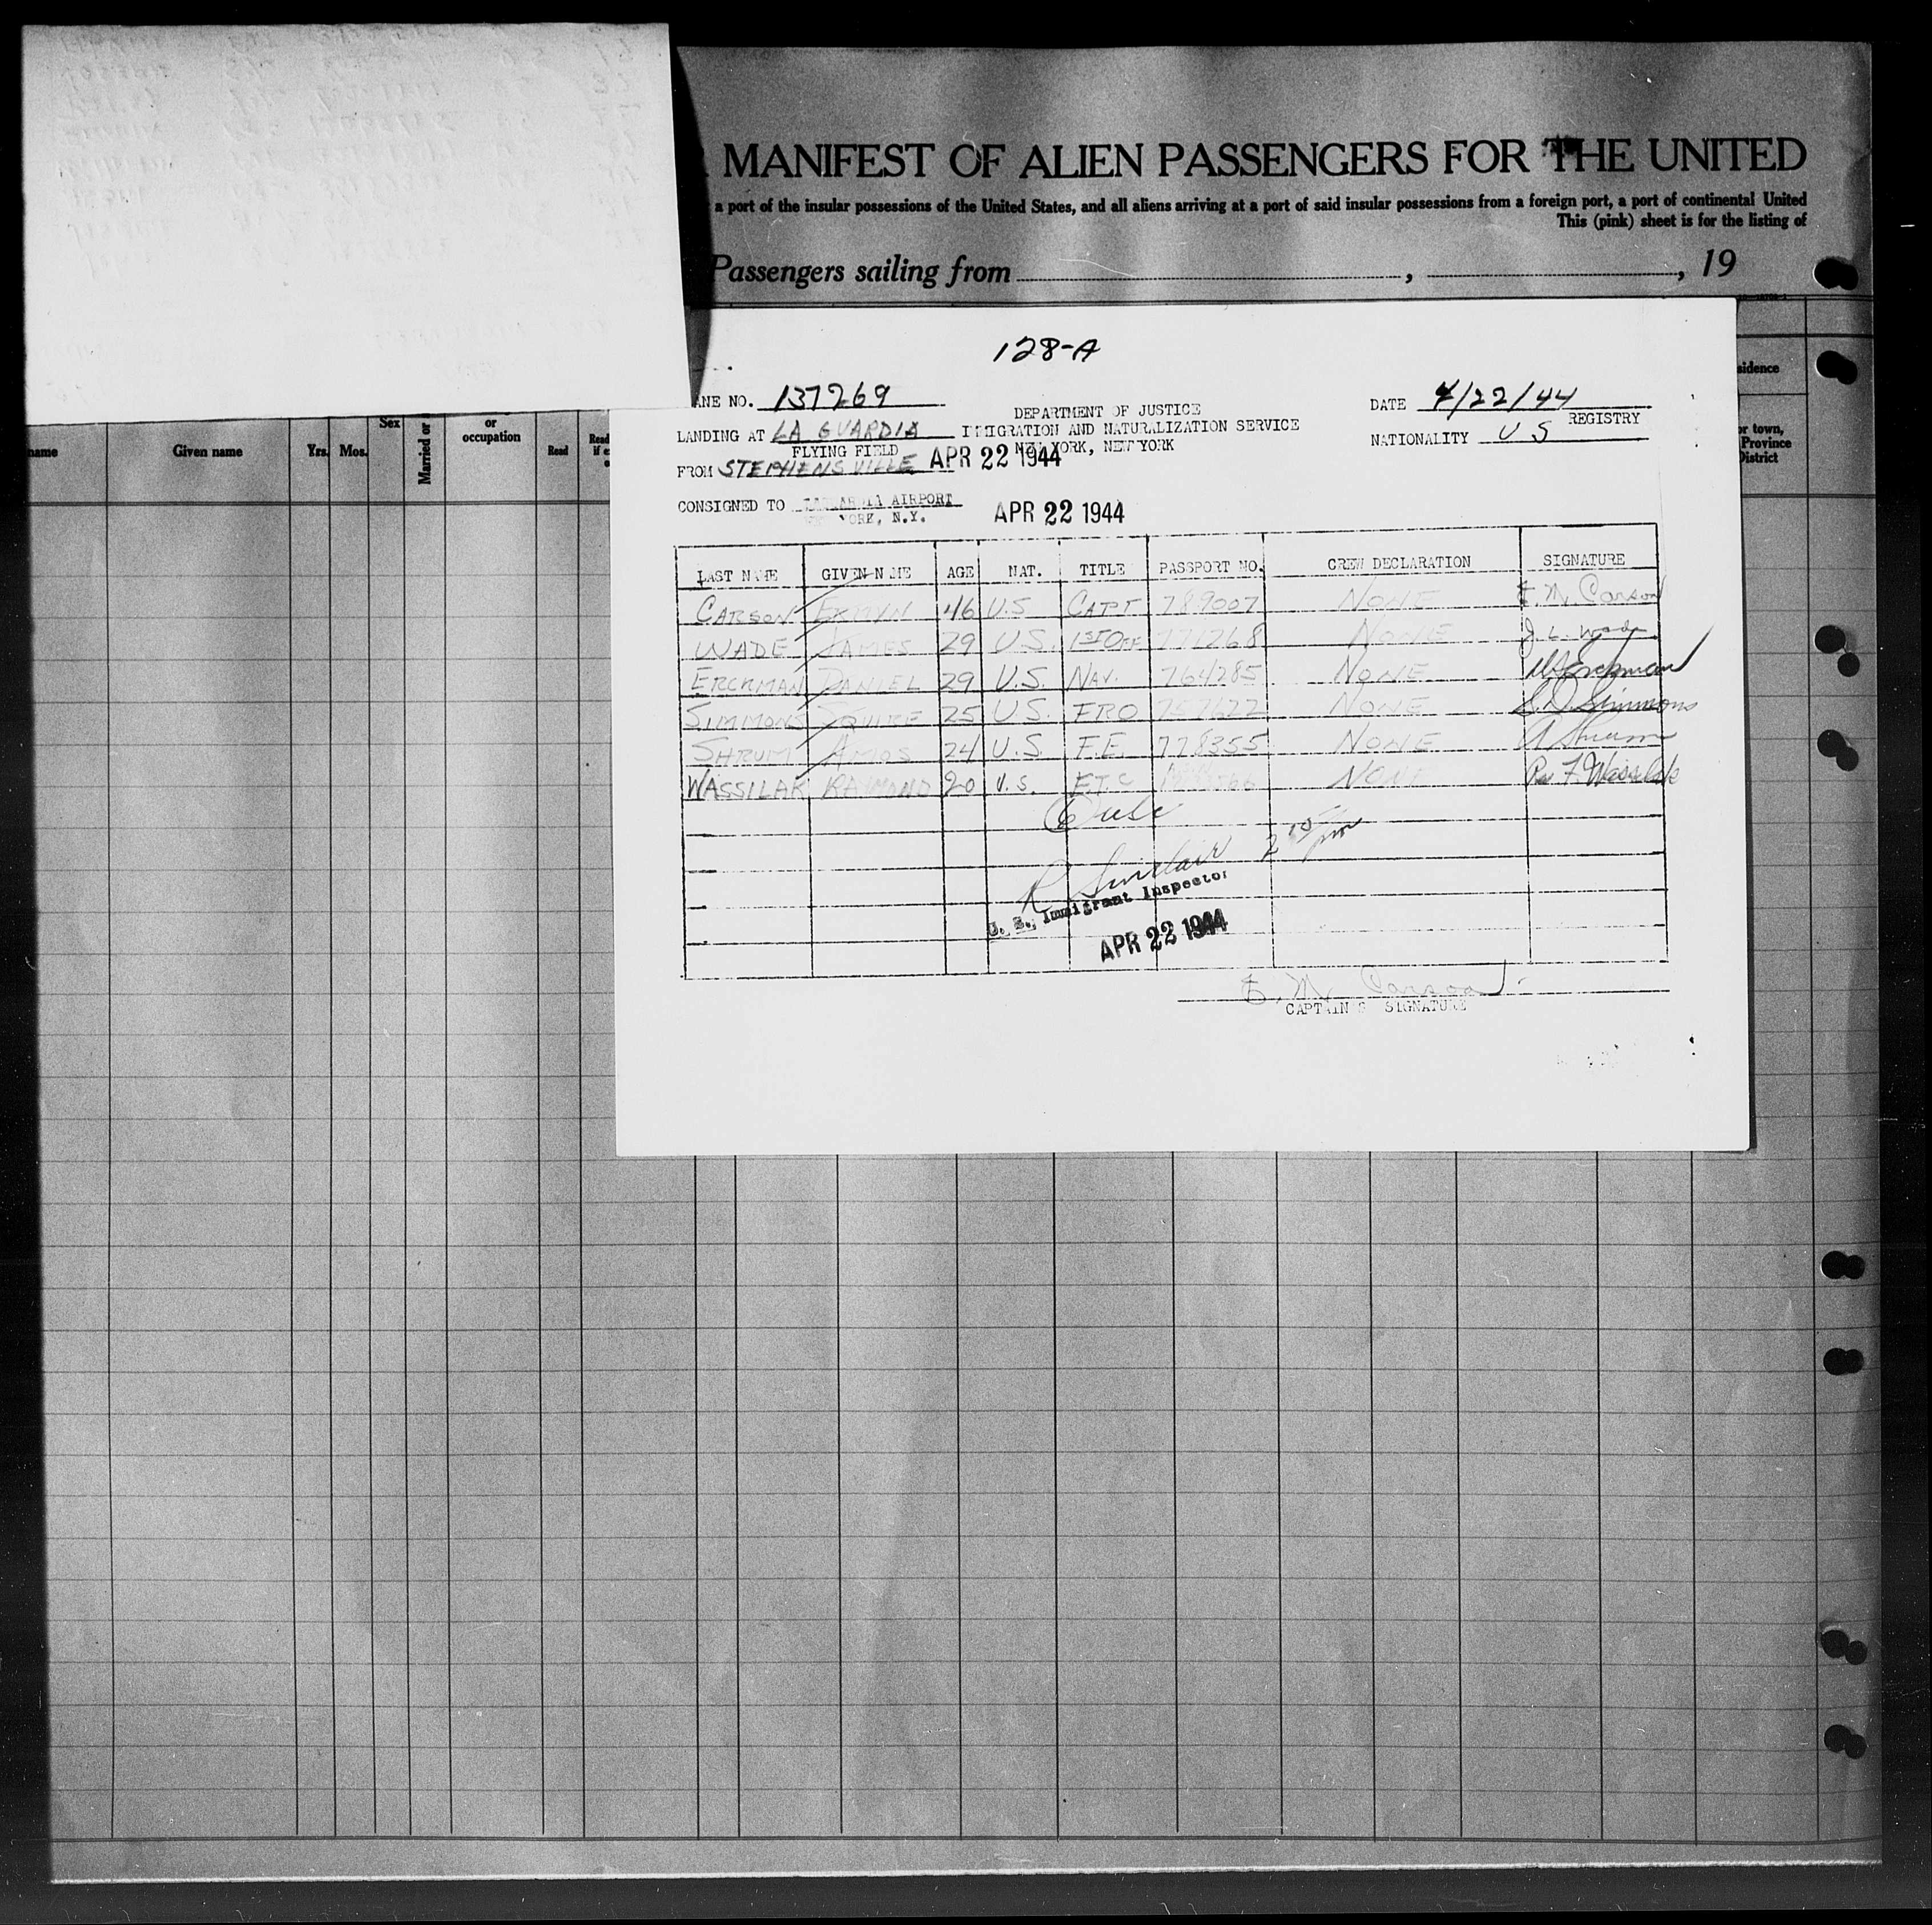 MANIFEST OF ALIEN PASSENGERS FOR THE UNITED
a port of the insular possessions of the United States, and all aliens arriving at a port of said insular possessions from a foreign port, a port of continental United
This (pink) sheet is for the listing of
Passengers sailing from , , 19
128-A
ANE NO. 137269
DATE 4/22/44
DEPARTMENT OF JUSTICE
REGISTRY
LANDING AT LA GUARDIA
IMMIGRATION AND NATURALIZATION SERVICE
NATIONALITY U S
FLYING FIELD
NEW YORK, NEW YORK
FROM STEPHENSVILLE
APR 22 1944
CONSIGNED TO LAGUARDIA AIRPORT
YORK, N.Y.
APR 22 1944
LAST NAME GIVEN NAME AGE NAT. TITLE PASSPORT NO. CREW DECLARATION SIGNATURE
CARSON ERMYN 46 U.S CAPT 789007 NONE E. M. Carson
WADE JAMES 29 U.S. 1ST OFF 771268 NONE J. L. Wade
ERCKMAN DANIEL 29 U.S. NAV. 764285 NONE Erckman
SIMMONS SQUIRE 25 U.S. FRO NONE S. D. Simmons
SHRUM AMOS 24 U.S. F.E. 778355 NONE A Shrum
WASSILAK RAYMOND 20 U.S. F.T.C NONE F. Wassilak
6 usc
R Sinclair 2 15 pm
U. S. Immigrant Inspector
APR 22 1944
E. M. Carson
CAPTAIN'S SIGNATURE
name
Given name
Yrs.
Mos.
Sex
Married or
or
occupation
Read
Read
if
sidence
or town,
Province
District